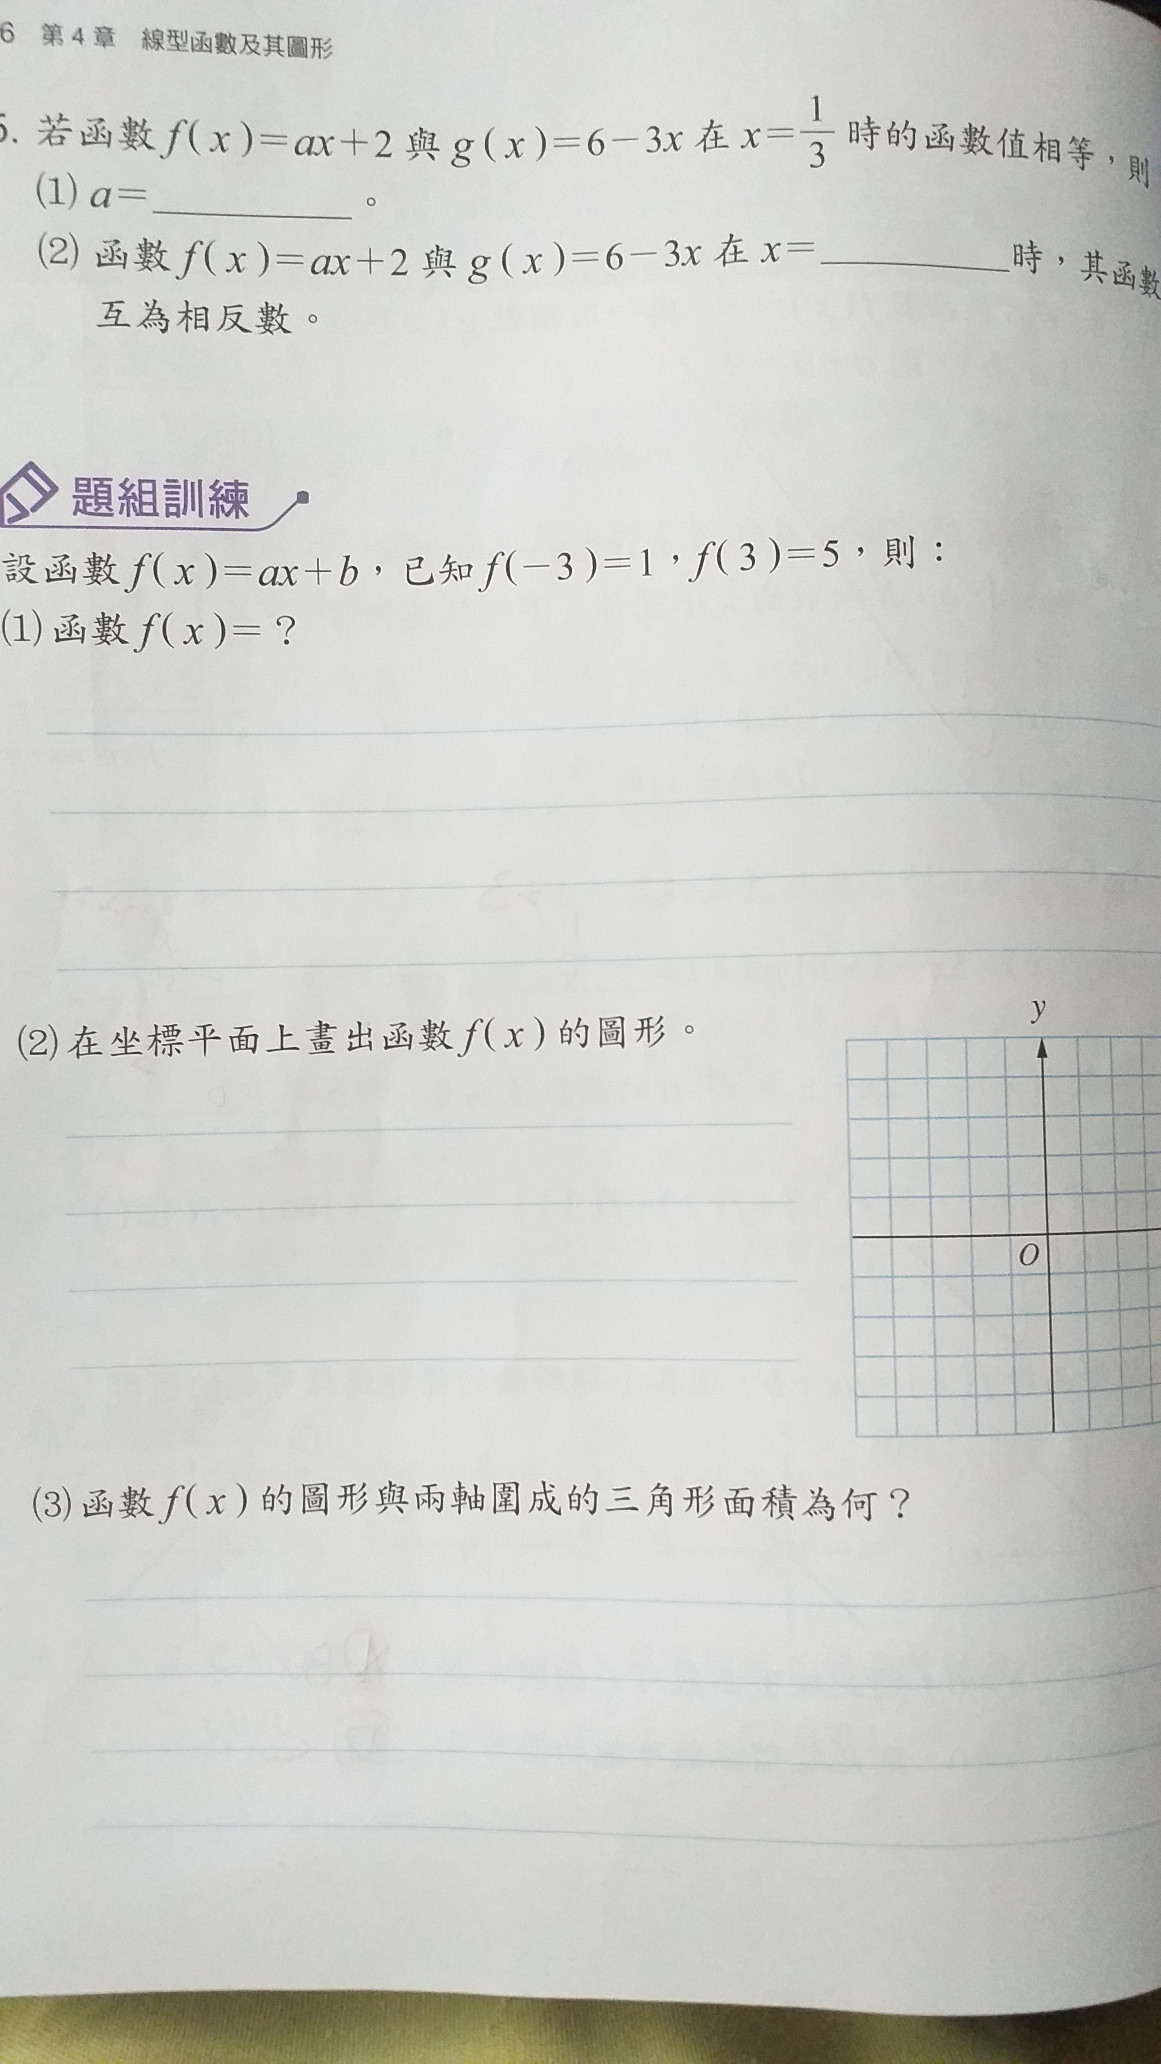 6 第4章 線型函數及其圖形
5. 若函數 f(x)=ax+2 與 g(x)=6-3x 在 x=1/3 時的函數值相等，則
(1) a=__________。
(2) 函數 f(x)=ax+2 與 g(x)=6-3x 在 x=__________時，其函數
互為相反數。
題組訓練
設函數 f(x)=ax+b，已知 f(-3)=1，f(3)=5，則：
(1) 函數 f(x)=？
(2) 在坐標平面上畫出函數 f(x) 的圖形。
y
O
(3) 函數 f(x) 的圖形與兩軸圍成的三角形面積為何？